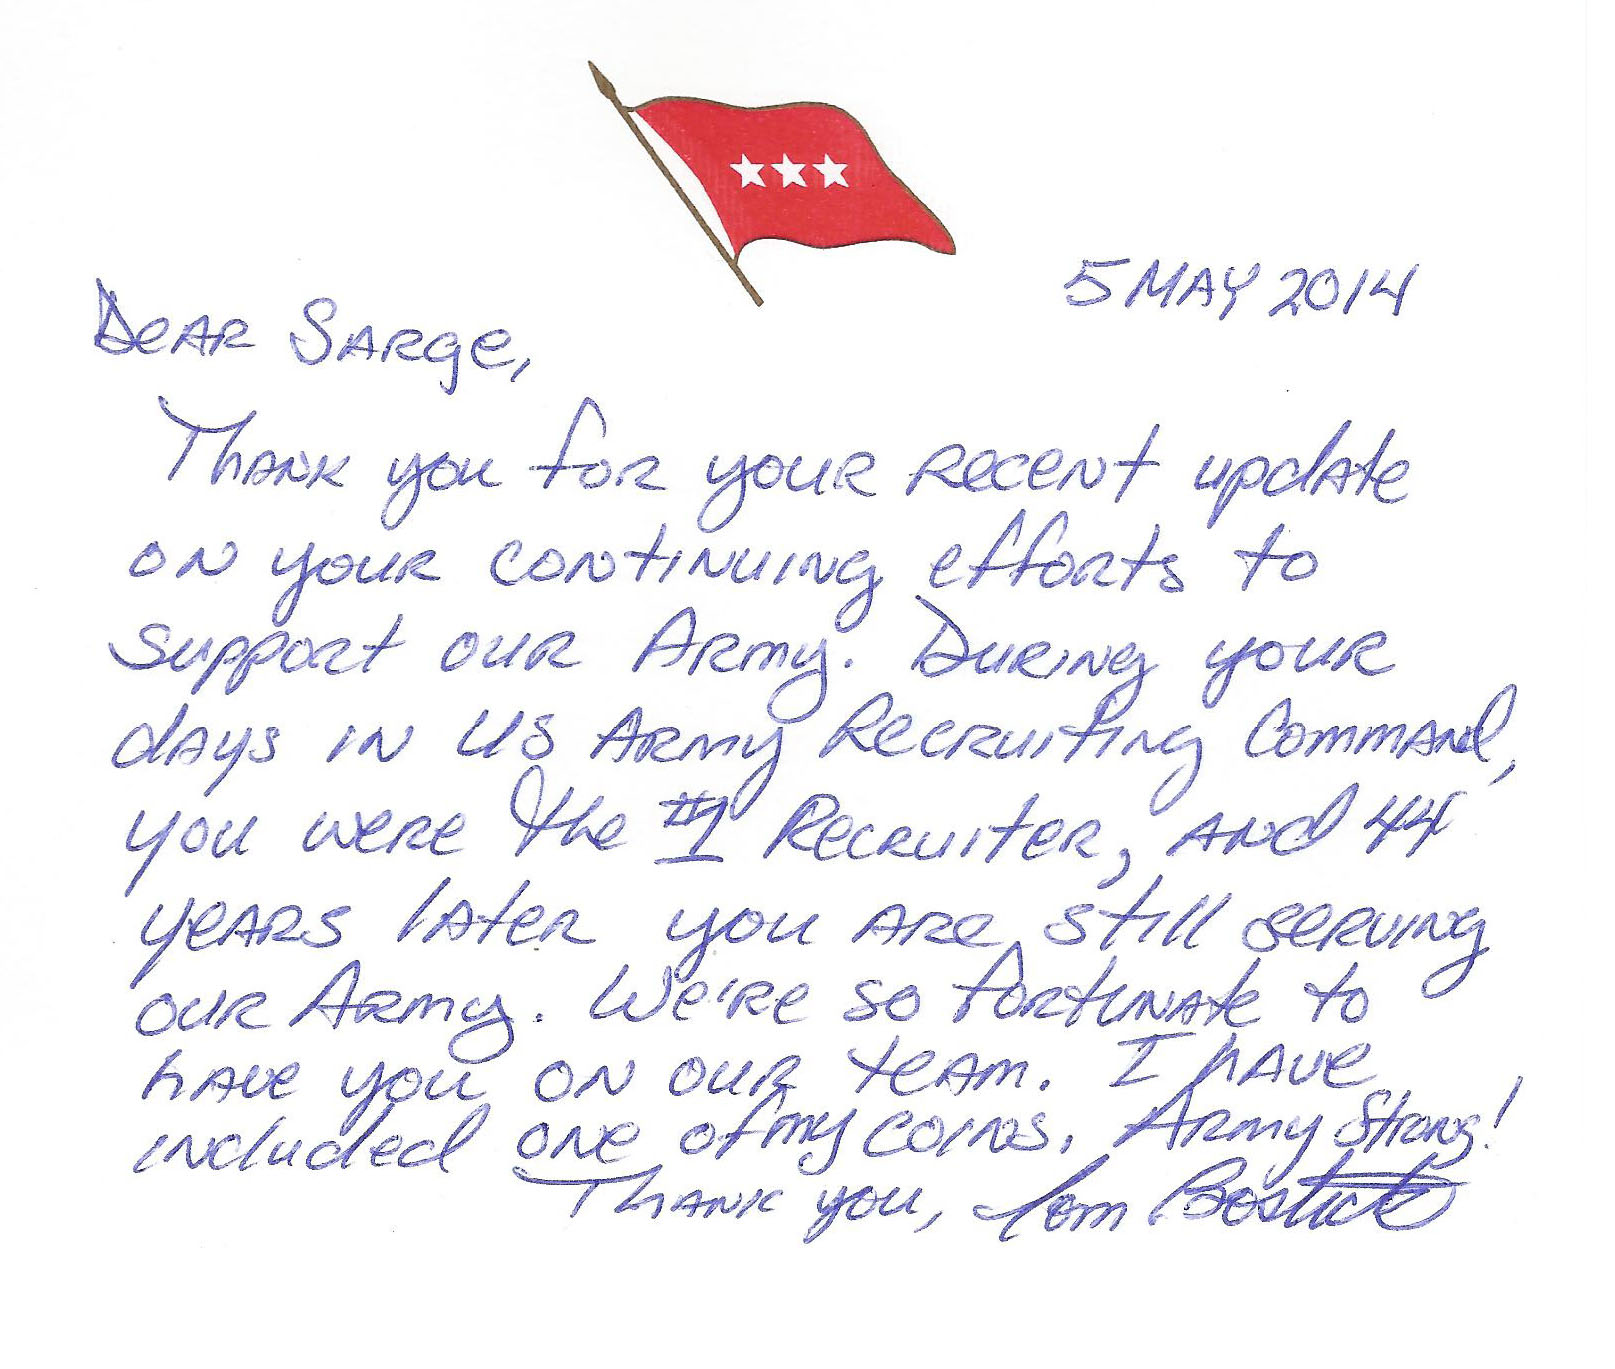 5 MAY 2014
Dear Sarge,
Thank you for your recent update
on your continuing efforts to
support our Army. During your
days in US Army Recruiting Command,
you were the #1 Recruiter, and 44
years later you are still serving
our Army. We're so fortunate to
have you on our team. I have
included one of my coins. Army Strong!
Thank you, Tom Bostick